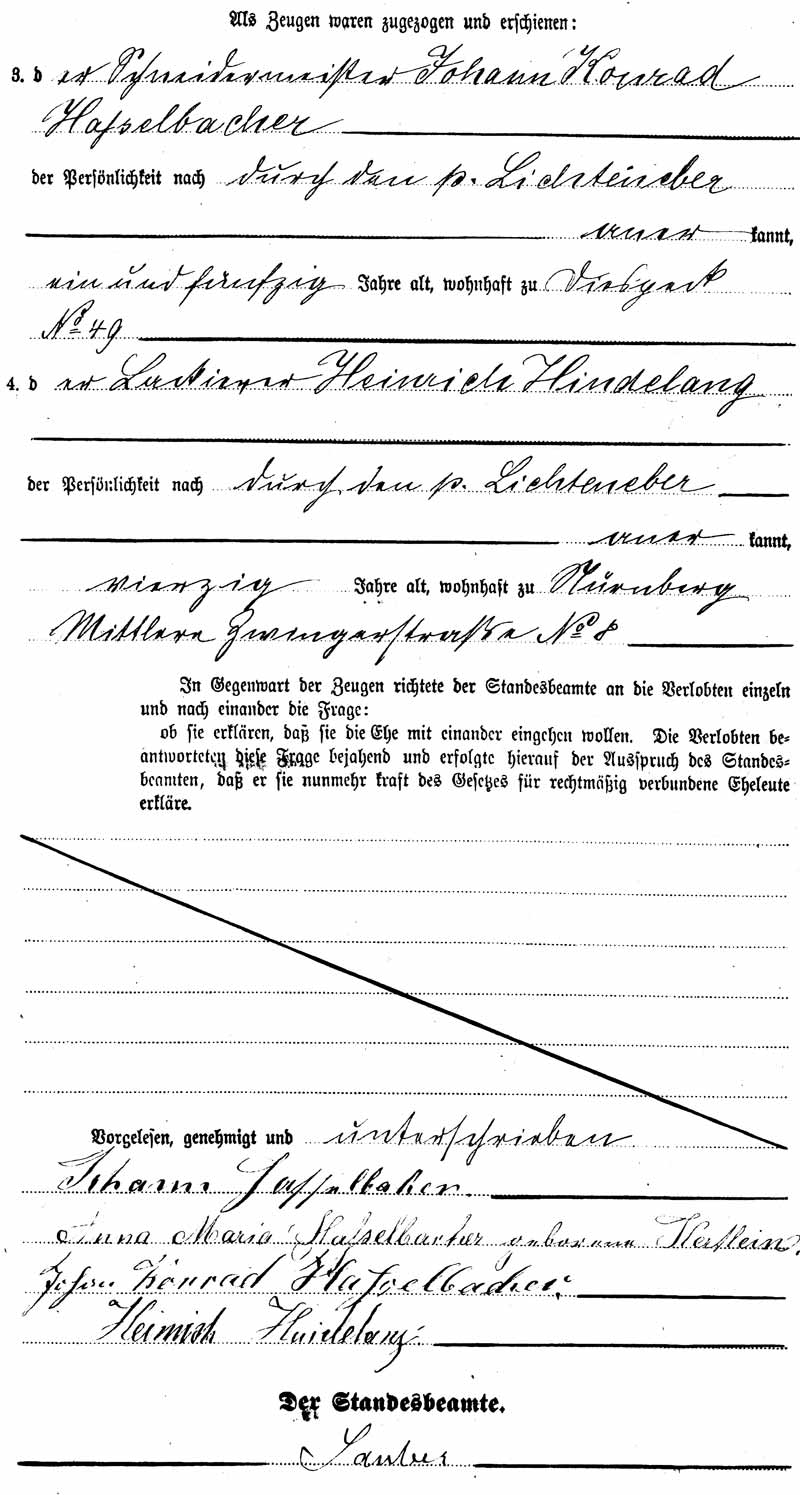 Als Zeugen waren zugezogen und erschienen:
3. d er Schneidermeister Johann Konrad
Hasselbacher
der Persönlichkeit nach durch den p. Lichteneber
aner kannt,
ein und fünfzig Jahre alt, wohnhaft zu Diespeck
No 49
4. d er Lackierer Heinrich Hindelang
der Persönlichkeit nach durch den p. Lichteneber
aner kannt,
vierzig Jahre alt, wohnhaft zu Nürnberg
Mittlere Zwingerstraße No 8
In Gegenwart der Zeugen richtete der Standesbeamte an die Verlobten einzeln
und nach einander die Frage:
ob sie erklären, daß sie die Ehe mit einander eingehen wollen. Die Verlobten be-
antworteten diese Frage bejahend und erfolgte hierauf der Ausspruch des Standes-
beamten, daß er sie nunmehr kraft des Gesetzes für rechtmäßig verbundene Eheleute
erkläre.
Vorgelesen, genehmigt und unterschrieben
Johann Hasselbacher.
Anna Maria Hasselbacher geborene
Johann Konrad Hasselbacher.
Heinrich Hindelang.
Der Standesbeamte.